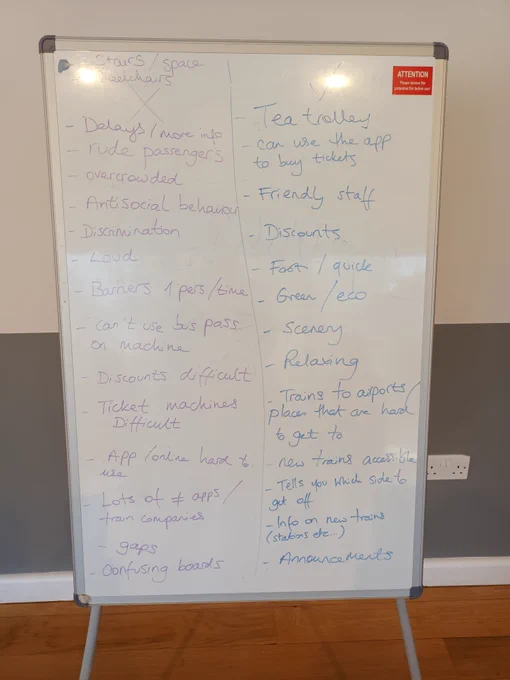 - Stairs / space
X
- Delays / more info
- rude passengers
- overcrowded
- Antisocial behaviour
- Discrimination
- Loud
- Barriers 1 pers / time
- can't use bus pass
on machine
- Discounts difficult
- Ticket machines
Difficult
- App / online hard to
use
- Lots of ≠ apps /
train companies
- gaps
- confusing boards
ATTENTION
- Tea trolley
- can use the app
to buy tickets
- Friendly staff
- Discounts
- Fast / quick
- Green / eco
- Scenery
- Relaxing
- Trains to airports /
places that are hard
to get to
- new trains accessible
- Tells you which side to
get off
- Info on new trains
(stations etc...)
- Announcements